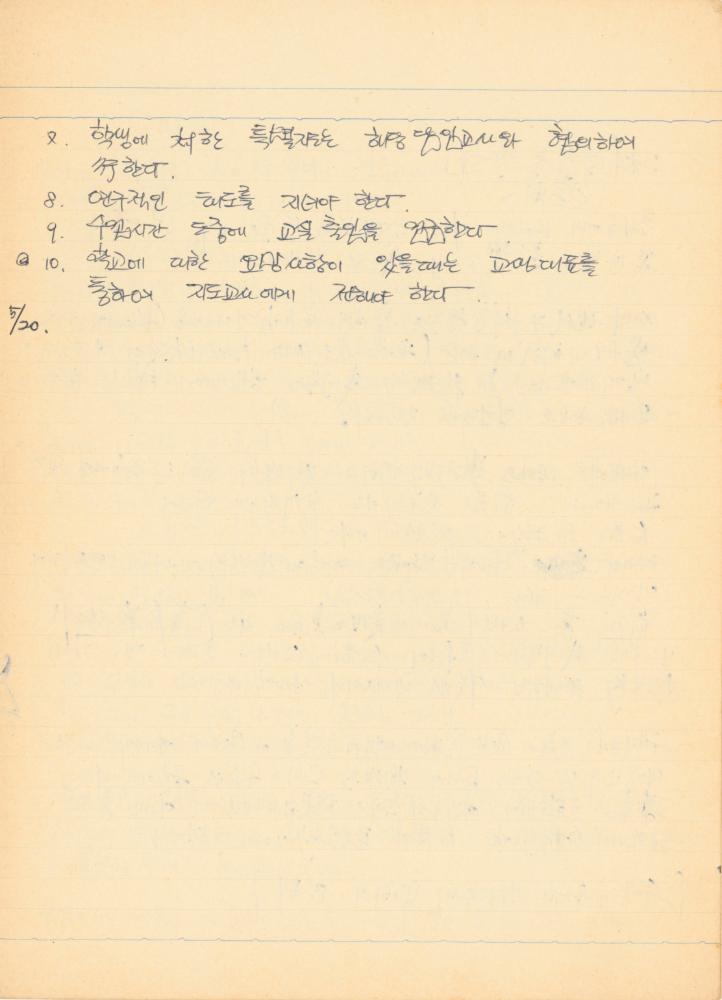 7. 학생에 대한 특별지도는 해당 담임교사와 협의하여
行한다.
8. 연구적인 태도를 지녀야 한다.
9. 수업시간 도중에 교실 출입을 엄금한다
10. 학교에 대한 요망사항이 있을때는 교생대표를
통하여 지도교사에게 전해야 한다.
5/20.